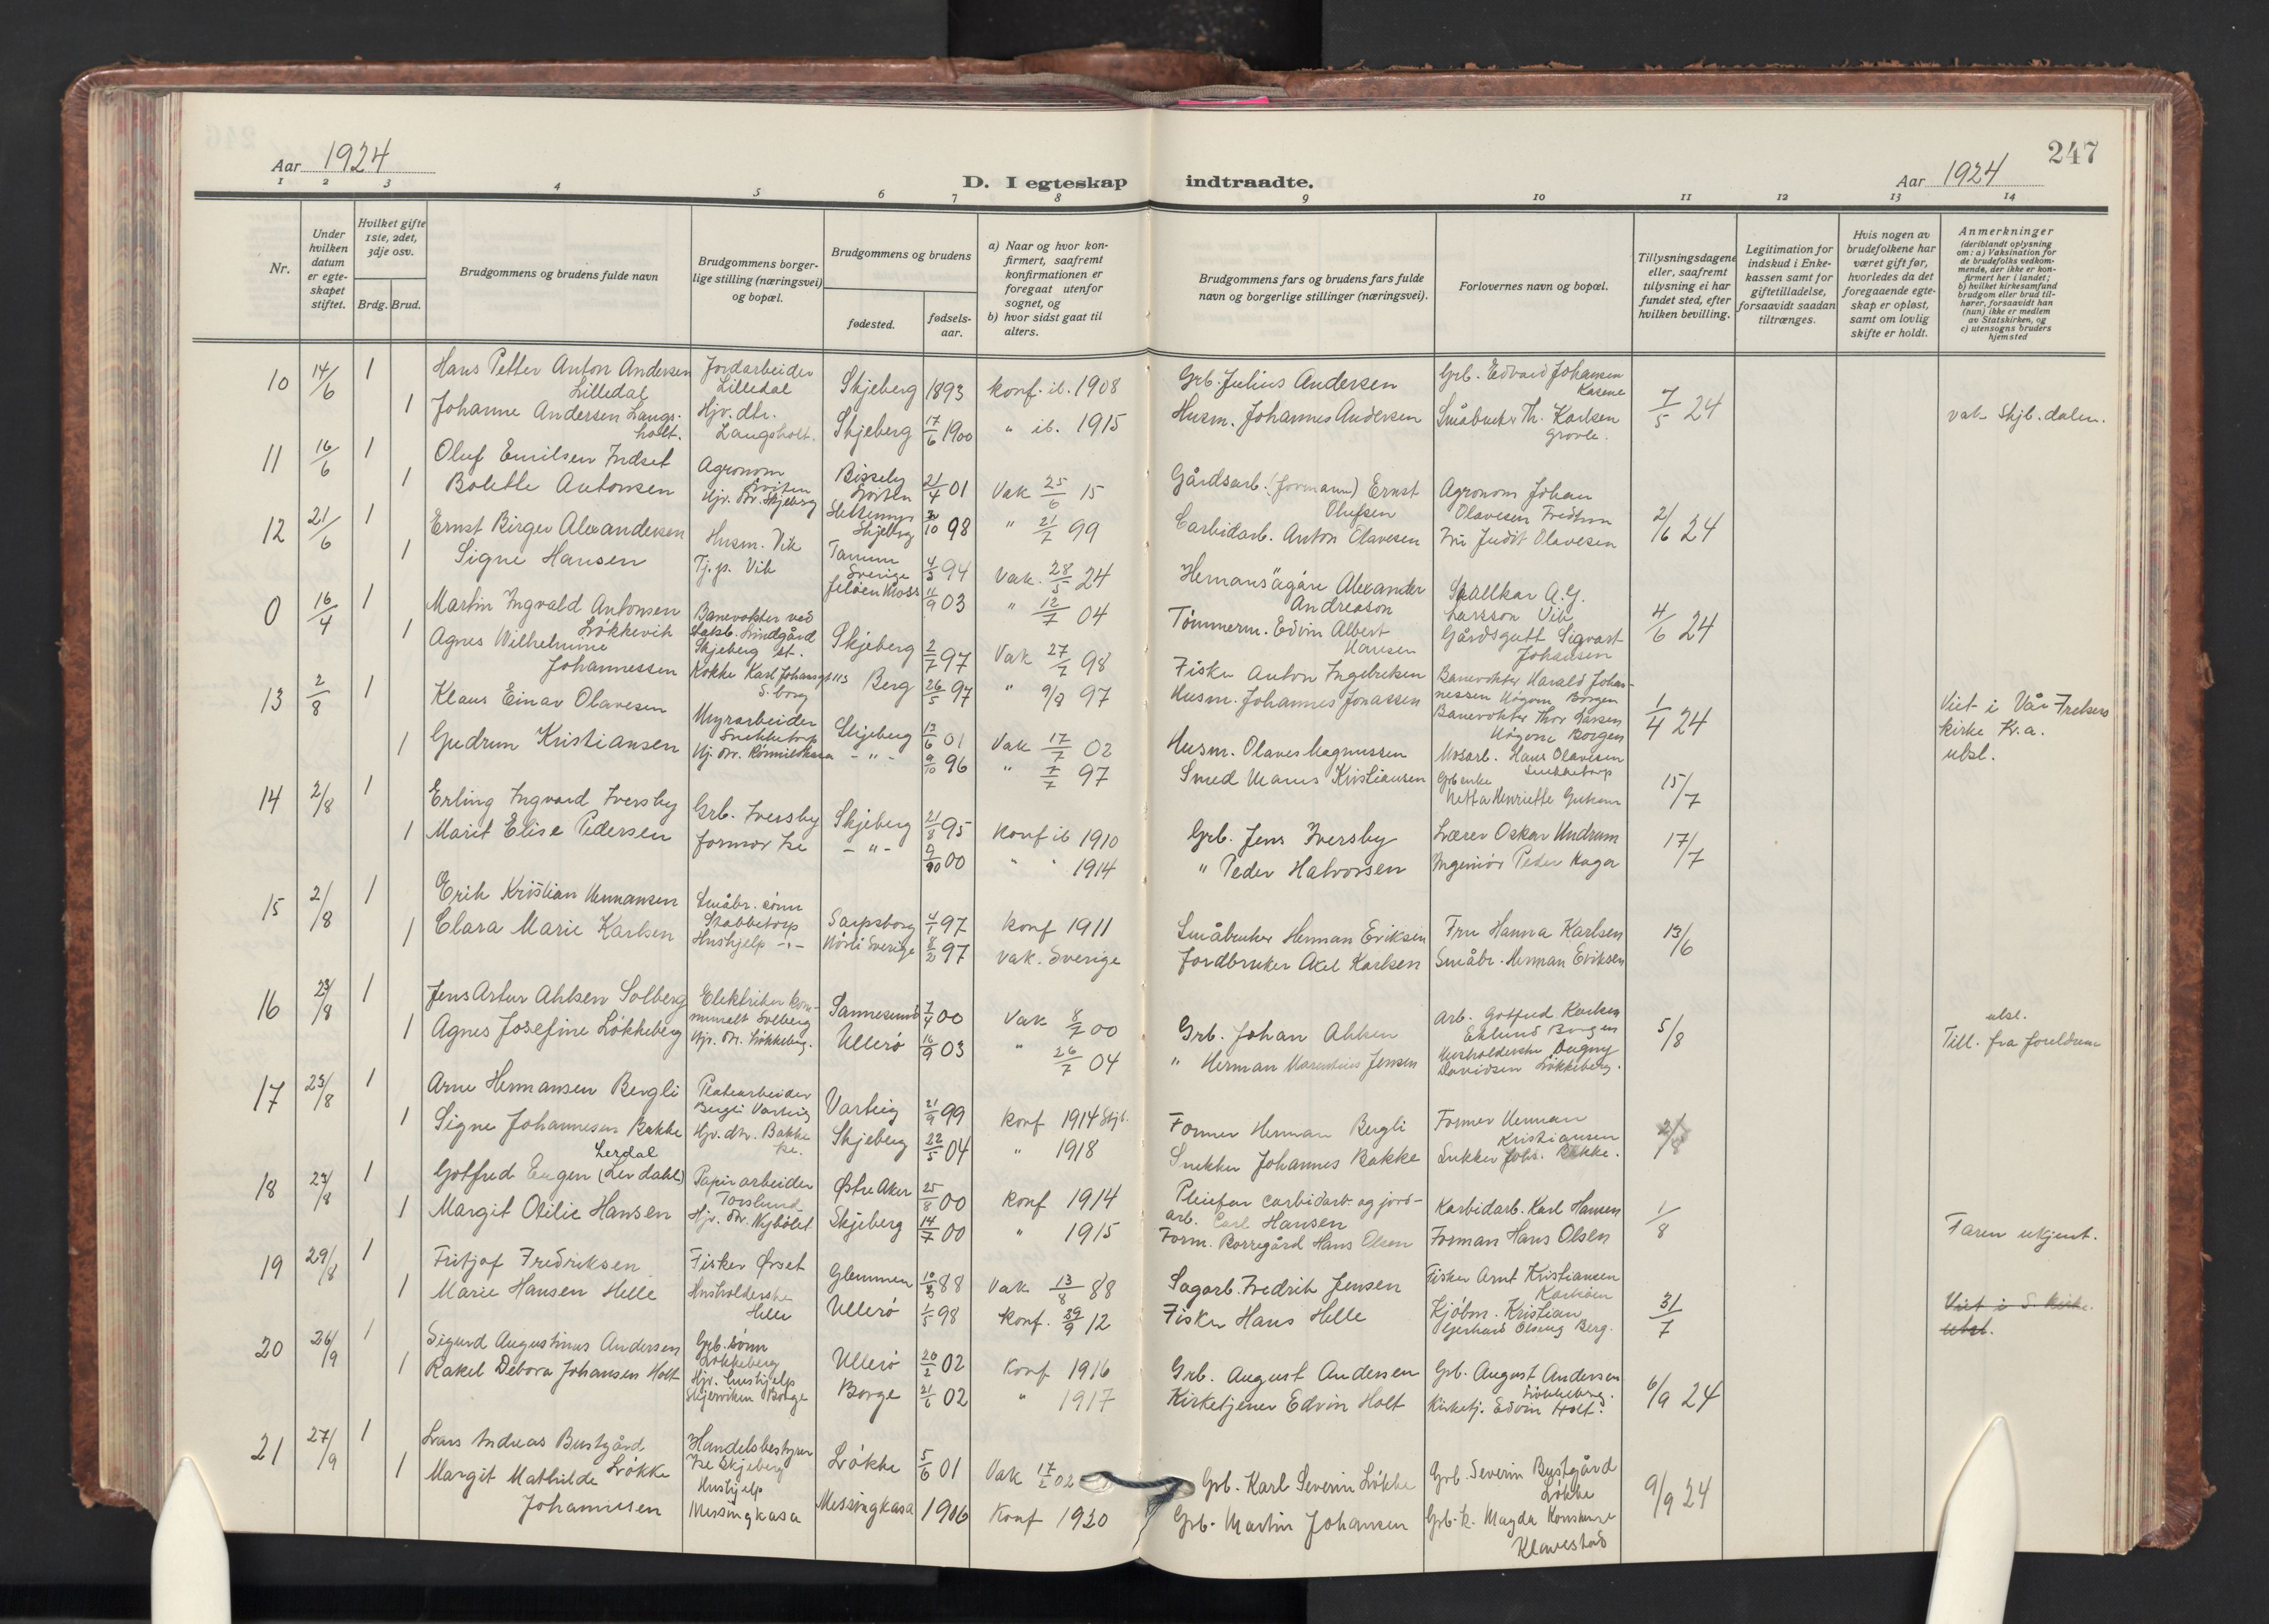 247
Aar 1924
D. I egteskap indtraadte.
Aar 1924
1 2 3 4 5 6 7 8 9 10 11 12 13 14
Nr.
Under hvilken datum er egte-skapet stiftet.
Hvilket gifte 1ste, 2det, 3dje osv.
Brdg. Brud.
Brudgommens og brudens fulde navn
Brudgommens borger-lige stilling (næringsvei) og bopæl.
Brudgommens og brudens
fødested.
fødsels-aar.
a) Naar og hvor kon-firmert, saafremt konfirmationen er foregaat utenfor sognet, og
b) hvor sidst gaat til alters.
Brudgommens fars og brudens fars fulde navn og borgerlige stillinger (næringsvei).
Forlovernes navn og bopæl.
Tillysningsdagene eller, saafremt tillysning ei har fundet sted, efter hvilken bevilling.
Legitimation for indskud i Enke-kassen samt for giftetilladelse, forsaavidt saadan tiltrænges.
Hvis nogen av brudefolkene har været gift før, hvorledes da det foregaaende egte-skap er opløst, samt om lovlig skifte er holdt.
Anmerkninger (deriblandt oplysning om: a) Vaksination for de brudefolks vedkom-mende, der ikke er kon-firmert her i landet; b) hvilket kirkesamfund brudgom eller brud til-hører, forsaavidt han (hun) ikke er medlem av Statskirken, og c) utensogns bruders hjemsted
10 14/6 1 Hans Petter Anton Andersen Lilledal Jordarbeider Lilledal Skjeberg 1893 konf. ib. 1908 Grb. Julius Andersen Grb. Edvard Johansen 7/5 24
1 Johanne Andersen Langsholt. Hjv. dtr. Langsholt. Skjeberg 17/6 1900 " ib. 1915 Husm. Johannes Andersen Småbruker Th. Karlsen vak Skjb. dalen.
11 16/6 1 Oluf Emilsen Indset Agronom 21/4 01 Vak 25/6 15 Gårdsarb. (formann) Ernst Olufsen Agronom Johan Olavesen 2/6 24
1 Bolette Antonsen Hjv. dtr. Skjeberg Skjeberg 30/10 98 " 21/7 99 Carbidarb. Anton Olavesen Fru Judit Olavesen
12 21/6 1 Ernst Birger Alexandersen Husm. Vik Tanum Sverige 4/3 94 Vak. 28/5 24 Hemansägare Alexander Andreason A. G. Larsson Vik 4/6 24
1 Signe Hansen Tj.p. Vik Jeløen Moss 11/9 03 " 12/7 04 Tømmerm. Edvin Albert Hansen Gårdsgutt Sigvart Johansen
0 16/4 1 Martin Ingvald Antonsen Løkkevik Banevokter ved Skjeberg st. Skjeberg 2/7 97 Vak 27/7 98 Fisker Anton Ingebretsen Banevokter Harald Johannessen Høgum Borgen 1/4 24 Viet i Vår Frelsers kirke Kr.a.
1 Agnes Wilhelmine Johannessen Kokke Karl Johansgt 113 S.borg Berg 26/5 97 " 9/8 97 Husm. Johannes Jonassen Banevokter Thor Larsen Høgum Borgen ubsl.
13 2/8 1 Klaus Einar Olavesen Myrarbeider Snekketorp Skjeberg 13/6 01 Vak 17/7 02 Husm. Olaves Magnussen Mosarb. Hans Olavesen Snekketorp 15/7
1 Gudrun Kristiansen Hj. dtr. -"- 9/10 96 " 7/7 97 Smed Maius Kristiansen Grb enke Netta Henriette
14 2/8 1 Erling Ingvard Iversby Grb. Iversby Skjeberg 21/8 95 konf ib 1910 Grb. Jens Iversby Lærer Oskar Undrum 17/7
1 Marit Elise Pedersen formor Ise -"- 9/10 00 " " 1914 " Peder Halvorsen Ingeniør Peder Hager
15 2/8 1 Erik Kristian Hermansen Småbr. sønn Stabbetorp Sarpsborg 4/1 97 konf 1911 Småbruker Herman Eriksen Fru Hanna Karlsen 13/6
1 Clara Marie Karlsen Hushjelp -"- Sverige 8/2 97 vak. Sverige Jordbruker Axel Karlsen Småbr. Herman Eriksen
16 23/8 1 Jens Artur Ahlsen Solberg Elektriker kommunalt Solberg Sannesund 7/4 00 Vak 8/7 00 Grb. Johan Ahlsen Arb. Gotfred Karlsen Eklund Borgen 5/8 ubsl.
1 Agnes Josefine Løkkeberg Hjv. dtr. Løkkeberg. Ullerø 16/9 03 " 26/7 04 " Herman Marentius Jensen Husholderske Dagny Davidsen Løkkeberg. Till. fra foreldrene
17 23/8 1 Arne Hermansen Bergli Platearbeider Bergli Varteig Varteig 21/9 99 konf 1914 Skjb. Former Herman Bergli Former Herman Kristiansen 2/8
1 Signe Johannesen Bakke Hjv. dtr. Bakke Ise. Skjeberg 22/5 04 " 1918 Snekker Johannes Bakke Snekker Johs. Bakke.
18 23/8 1 Gotfred Eugen (Lerdahl) Lerdal Papirarbeider Torslund Østre Aker 25/8 00 konf 1914 Pleiefar carbidarb. og jordarb. Carl Hansen Karbidarb. Karl Hansen 1/8
1 Margit Otilie Hansen Hjv. dtr. Nybølet Skjeberg 14/7 00 " 1915 Form. Borregård Hans Olsen Forman Hans Olsen Faren ukjent.
19 29/8 1 Fritjof Fredriksen Fisker Ørset Glemmen 10/3 88 Vak 13/8 88 Sagarb. Fredrik Jensen Fisker Arnt Kristiansen 31/7
1 Marie Hansen Helle Husholderske Helle Ullerø 1/5 98 konf. 29/9 12 Fisker Hans Helle Kjøbm. Kristian Gerhard Berg. Viet i S. kirke. ubsl.
20 26/9 1 Sigurd Augustinus Andersen Grb. sønn Løkkeberg Ullerø 20/2 02 konf 1916 Grb. August Andersen Grb. August Andersen Løkkeberg. 6/9 24
1 Rakel Debora Johansen Holt Hjv. hushjelp Skjærviken Borge Borge 21/6 02 " 1917 Kirketjener Edvin Holt Kirketj. Edvin Holt.
21 27/9 1 Lars Andreas Bustgård Løkke Handelsbestyrer Ise Skjeberg Løkke 5/6 01 Vak 17/2 02 Grb. Karl Severin Løkke Grb. Severin Bustgård Løkke 9/9 24
1 Margit Mathilde Johannesen Hushjelp Messingkasa Messingkasa 1906 konf 1920 Grb. Martin Johansen Grb. k. Magda Konstanse Klavestad